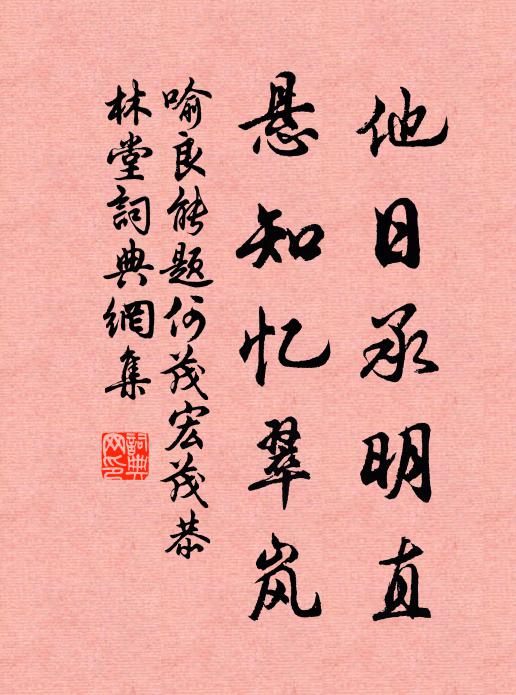 他日承明直
悬知忆翠岚
喻良能题何茂宏茂恭
林堂詞典網集
詞典网印